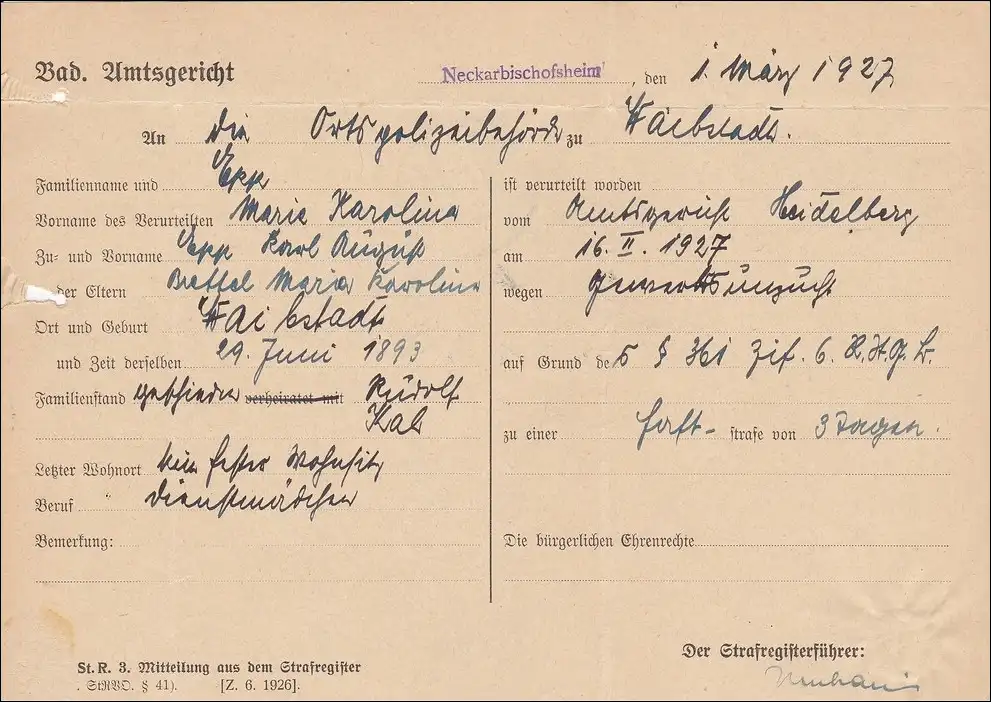 Bad. Amtsgericht Neckarbischofsheim, den 1. März 1927
An die Ortspolizeibehörde zu Waibstadt.
Familienname und Epp
Vorname des Verurteilten Maria Karolina
Zu- und Vorname Epp Karl August
der Eltern Maria Karolina
Ort und Geburt Waibstadt
und Zeit derselben 29. Juni 1893
Familienstand geschieden verheiratet mit Rudolf
Letzter Wohnort kein fester Wohnsitz
Beruf " Dienstmädchen
Bemerkung:
ist verurteilt worden
vom Amtsgericht Heidelberg
am 16. II. 1927
wegen Gewerbsunzucht
auf Grund des § 361 Zif. 6. R.St.G.B.
zu einer Haft- strafe von 3 Tagen.
Die bürgerlichen Ehrenrechte
St.R. 3. Mitteilung aus dem Strafregister
. StRVO. § 41). [Z. 6. 1926].
Der Strafregisterführer: